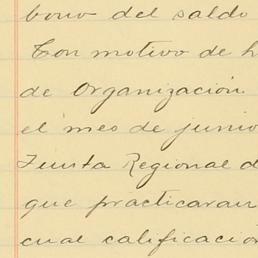 bono del saldo
Con motivo de h
de Organización
el mes de junio
Junta Regional d
que practicaran
cual calificación